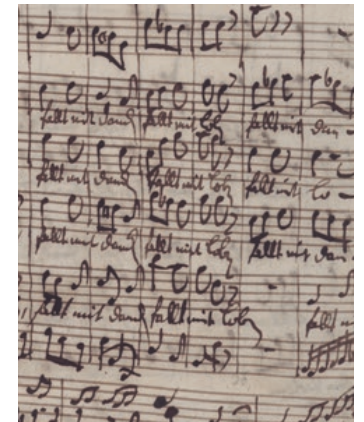 fallt mit Danck fallt mit Lob, fallt mit Dan -
fallt mit Danck fallt mit Lob, fallt mit Lo -
fallt mit Danck fallt mit Lob, fallt mit Dan -
fallt mit Danck fallt mit Lob, fallt